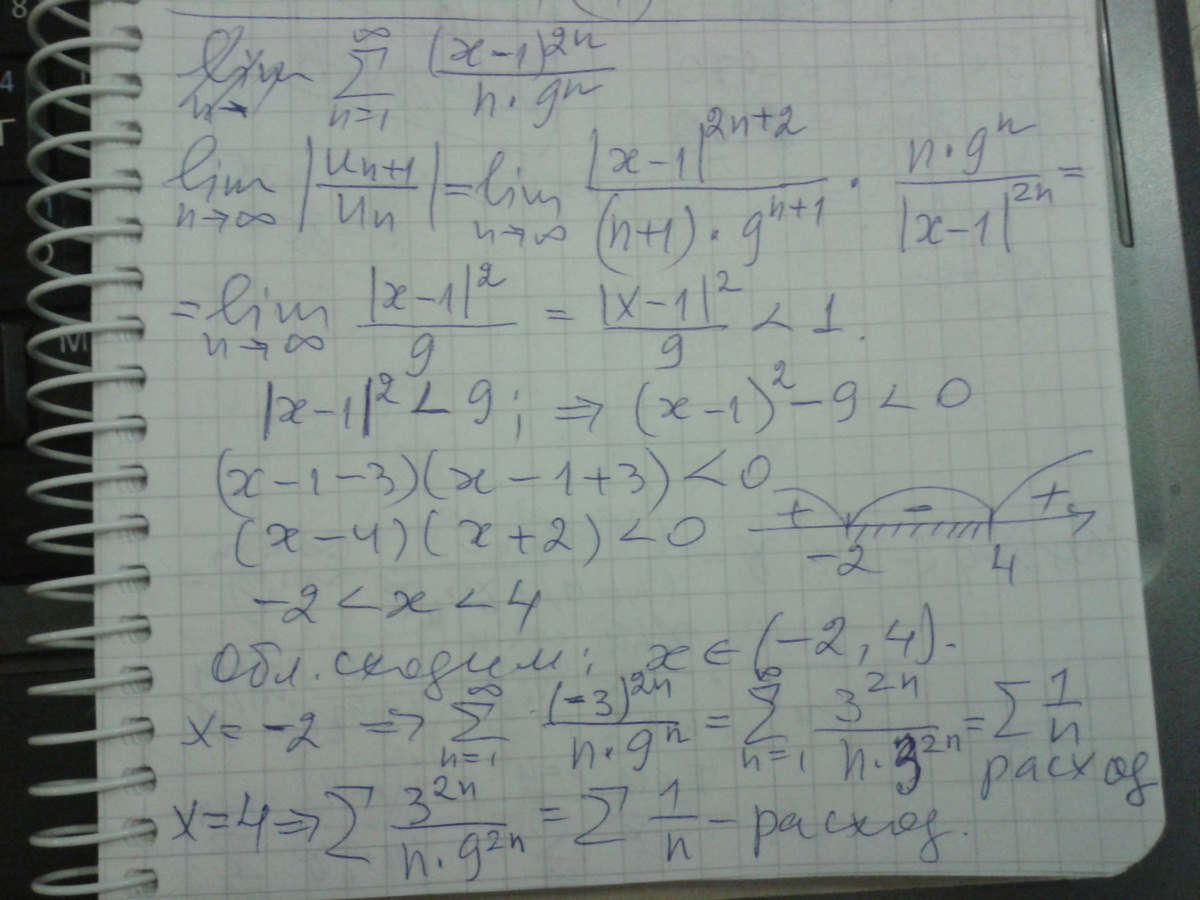 lim n→ ∑_{n=1}^{∞} (x-1)^{2n} / (n·9^n)
lim_{n→∞} |U_{n+1} / U_n| = lim_{n→∞} |x-1|^{2n+2} / ((n+1)·9^{n+1}) · n·9^n / |x-1|^{2n} =
= lim_{n→∞} |x-1|^2 / 9 = |x-1|^2 / 9 < 1.
|x-1|^2 < 9; ⇒ (x-1)^2 - 9 < 0
(x-1-3)(x-1+3) < 0
(x-4)(x+2) < 0
+ - +
-2 4
-2 < x < 4
Обл. сходим: x ∈ (-2, 4).
x = -2 ⇒ ∑_{n=1}^{∞} (-3)^{2n} / (n·9^n) = ∑_{n=1}^{∞} 3^{2n} / (n·3^{2n}) = ∑ 1/n расход
x = 4 ⇒ ∑ 3^{2n} / (n·9^{2n}) = ∑ 1/n - расход.